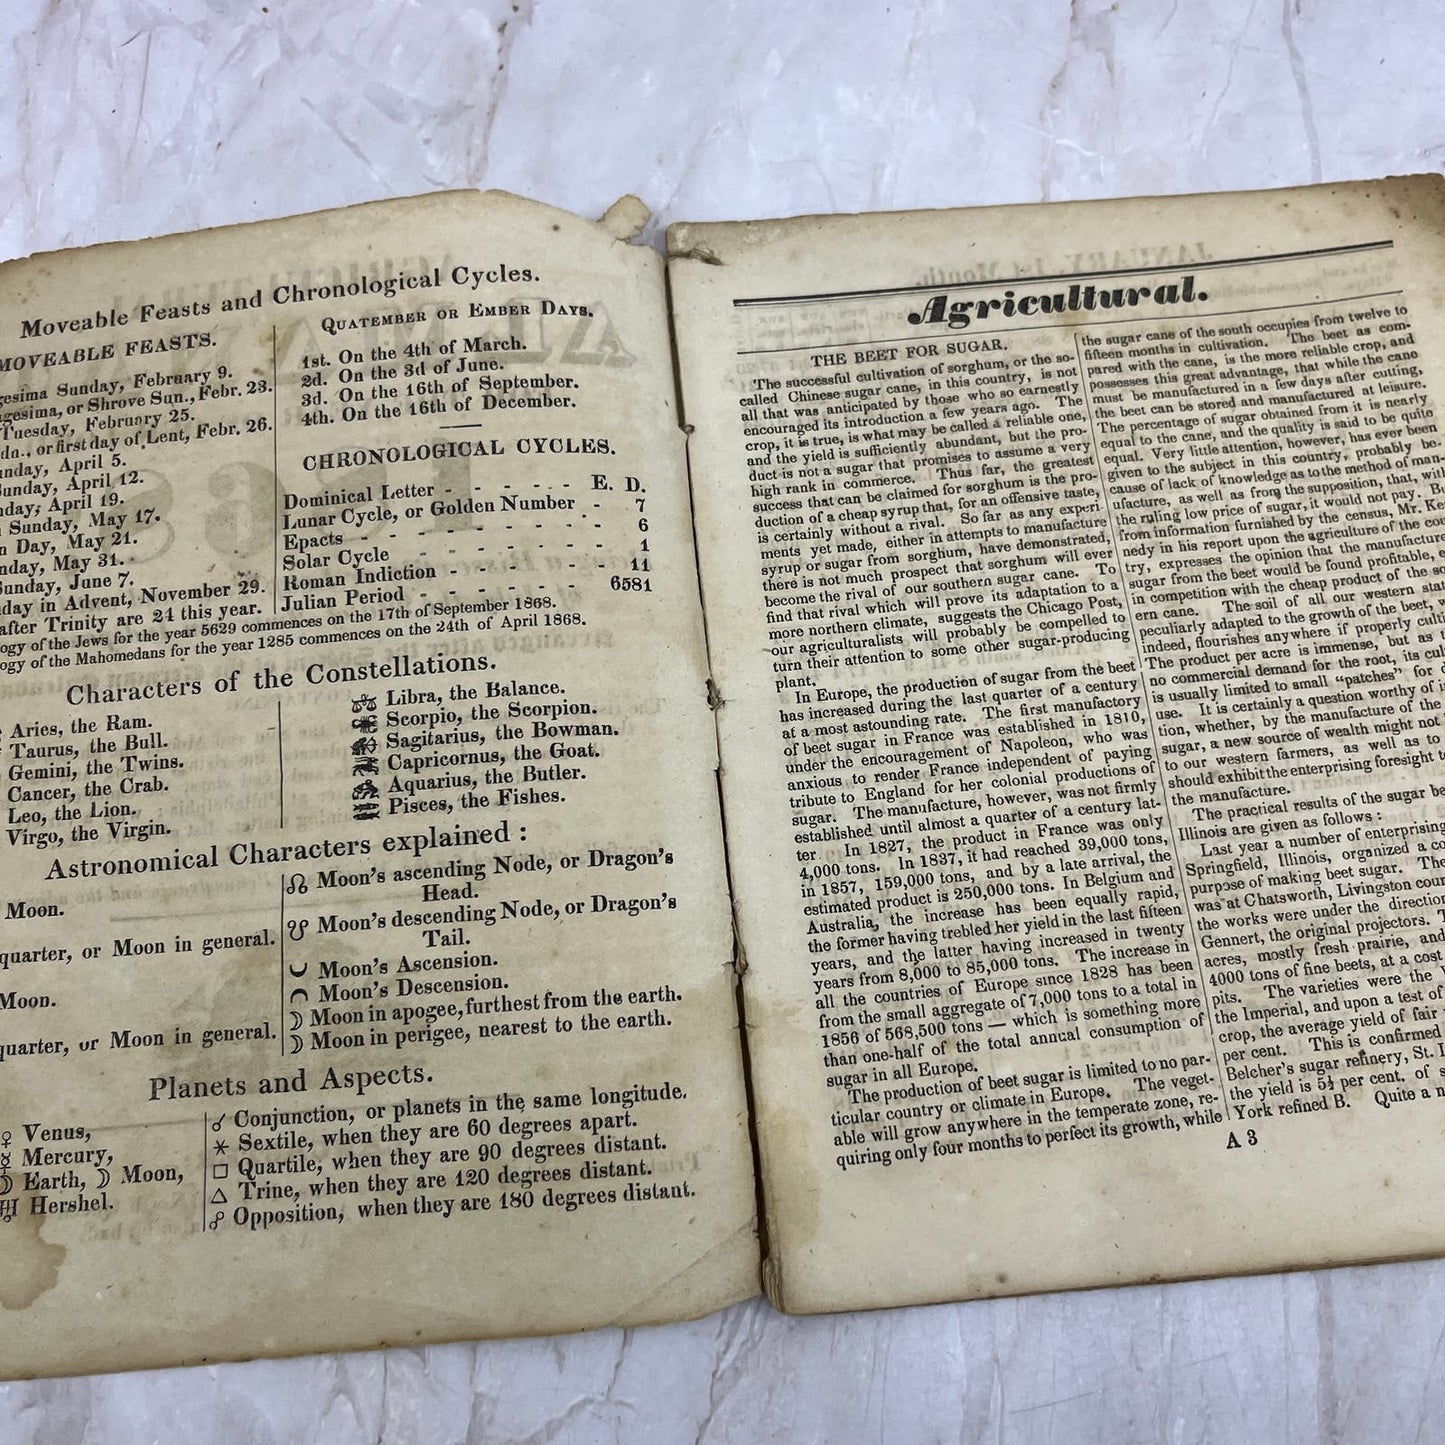 Moveable Feasts and Chronological Cycles.
MOVEABLE FEASTS.
Sunday, February 9.
or Shrove Sun., Febr. 23.
Tuesday, February 25.
or first day of Lent, Febr. 26.
April 5.
April 12.
April 19.
Sunday, May 17.
Day, May 21.
May 31.
June 7.
in Advent, November 29.
after Trinity are 24 this year.
QUATEMBER OR EMBER DAYS.
1st. On the 4th of March.
2d. On the 3d of June.
3d. On the 16th of September.
4th. On the 16th of December.
CHRONOLOGICAL CYCLES.
Dominical Letter - - - - - E. D.
Lunar Cycle, or Golden Number - 7
Epacts - - - - - - - - 6
Solar Cycle - - - - - - - 1
Roman Indiction - - - - - - 11
Julian Period - - - - - - 6581
of the Jews for the year 5629 commences on the 17th of September 1868.
of the Mahomedans for the year 1285 commences on the 24th of April 1868.
Characters of the Constellations.
Aries, the Ram.
Taurus, the Bull.
Gemini, the Twins.
Cancer, the Crab.
Leo, the Lion.
Virgo, the Virgin.
♎ Libra, the Balance.
♏ Scorpio, the Scorpion.
♐ Sagitarius, the Bowman.
♑ Capricornus, the Goat.
♒ Aquarius, the Butler.
♓ Pisces, the Fishes.
Astronomical Characters explained :
Moon.
quarter, or Moon in general.
Moon.
quarter, or Moon in general.
☊ Moon's ascending Node, or Dragon's
Head.
☋ Moon's descending Node, or Dragon's
Tail.
Moon's Ascension.
Moon's Descension.
☽ Moon in apogee, furthest from the earth.
☽ Moon in perigee, nearest to the earth.
Planets and Aspects.
♀ Venus,
☿ Mercury,
Earth, ☽ Moon,
♅ Hershel.
☌ Conjunction, or planets in the same longitude.
⚹ Sextile, when they are 60 degrees apart.
□ Quartile, when they are 90 degrees distant.
△ Trine, when they are 120 degrees distant.
☍ Opposition, when they are 180 degrees distant.
Agricultural.
THE BEET FOR SUGAR.
The successful cultivation of sorghum, or the so-
called Chinese sugar cane, in this country, is not
all that was anticipated by those who so earnestly
encouraged its introduction a few years ago. The
crop, it is true, is what may be called a reliable one,
and the yield is sufficiently abundant, but the pro-
duct is not a sugar that promises to assume a very
high rank in commerce. Thus far, the greatest
success that can be claimed for sorghum is the pro-
duction of a cheap syrup that, for an offensive taste,
is certainly without a rival. So far as any experi-
ments yet made, either in attempts to manufacture
syrup or sugar from sorghum, have demonstrated,
there is not much prospect that sorghum will ever
become the rival of our southern sugar cane. To
find that rival which will prove its adaptation to a
more northern climate, suggests the Chicago Post,
our agriculturalists will probably be compelled to
turn their attention to some other sugar-producing
plant.
In Europe, the production of sugar from the beet
has increased during the last quarter of a century
at a most astounding rate. The first manufactory
of beet sugar in France was established in 1810,
under the encouragement of Napoleon, who was
anxious to render France independent of paying
tribute to England for her colonial productions of
sugar. The manufacture, however, was not firmly
established until almost a quarter of a century lat-
ter In 1827, the product in France was only
4,000 tons. In 1837, it had reached 39,000 tons,
in 1857, 159,000 tons, and by a late arrival, the
estimated product is 250,000 tons. In Belgium and
Australia, the increase has been equally rapid,
the former having trebled her yield in the last fifteen
years, and the latter having increased in twenty
years from 8,000 to 85,000 tons. The increase in
all the countries of Europe since 1828 has been
from the small aggregate of 7,000 tons to a total in
1856 of 568,500 tons — which is something more
than one-half of the total annual consumption of
sugar in all Europe.
The production of beet sugar is limited to no par-
ticular country or climate in Europe. The veget-
able will grow anywhere in the temperate zone, re-
quiring only four months to perfect its growth, while
the sugar cane of the south occupies from twelve to
fifteen months in cultivation. The beet as com-
pared with the cane, is the more reliable crop, and
possesses this great advantage, that while the cane
must be manufactured in a few days after cutting,
the beet can be stored and manufactured at leisure.
The percentage of sugar obtained from it is nearly
equal to the cane, and the quality is said to be quite
equal. Very little attention, however, has ever been
given to the subject in this country, probably be-
cause of lack of knowledge as to the method of man-
ufacture, as well as from the supposition, that, with
the ruling low price of sugar, it would not pay.
from information furnished by the census, Mr.
nedy in his report upon the agriculture of the
try, expresses the opinion that the manufacture
sugar from the beet would be found profitable,
in competition with the cheap product of the
ern cane. The soil of all our western
peculiarly adapted to the growth of the beet,
indeed, flourishes anywhere if properly
The product per acre is immense, but as
no commercial demand for the root, its
is usually limited to small "patches" for
use. It is certainly a question worthy of
tion, whether, by the manufacture of the
sugar, a new source of wealth might not
to our western farmers, as well as to
should exhibit the enterprising foresight
the manufacture.
The practical results of the sugar
Illinois are given as follows :
Last year a number of enterprising
Springfield, Illinois, organized a
purpose of making beet sugar.
was at Chatsworth, Livingston
the works were under the
Gennert, the original projectors.
acres, mostly fresh prairie, and
4000 tons of fine beets, at a cost
pits. The varieties were the
the Imperial, and upon a test of
crop, the average yield of fair
per cent. This is confirmed
Belcher's sugar refinery, St.
the yield is 5½ per cent. of
York refined B. Quite a
A 3